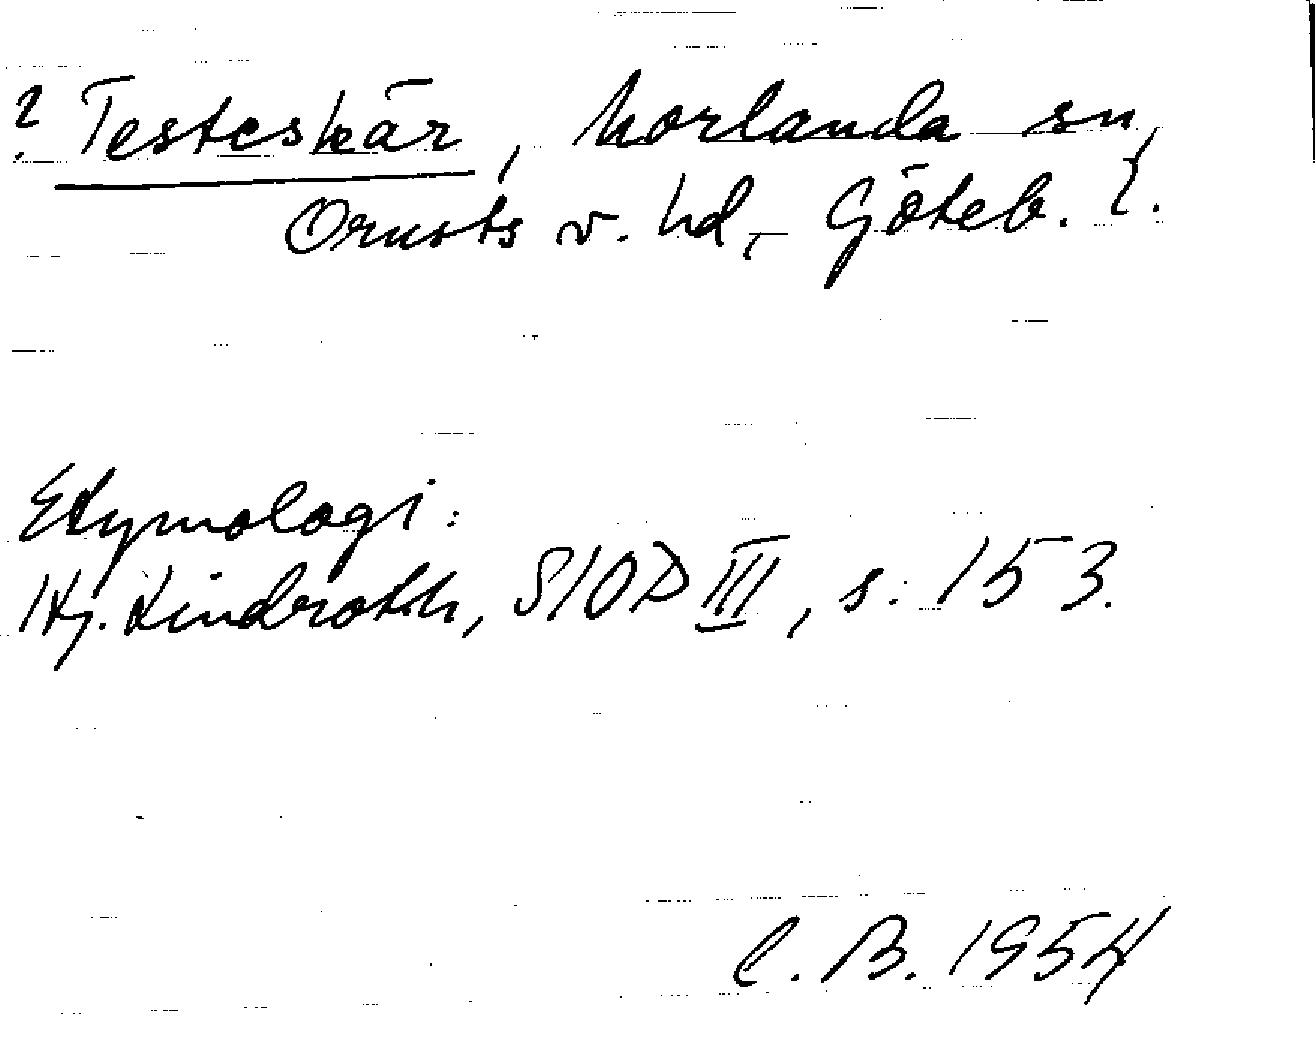 ? Testeskär, Morlanda sn,
Orusts v. hd, Göteb. l.
Etymologi:
Hj. Lindroth, SIOD III, s. 153.
C. B. 1954